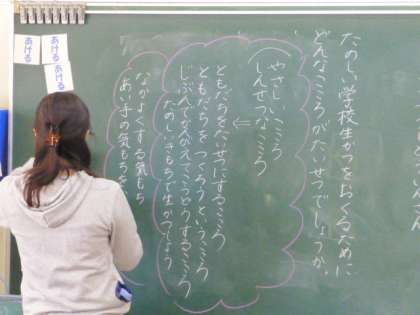 たのしい学校生かつをおくるために
どんなこころがたいせつでしょうか。
やさしいこころ
しんせつなこころ
ともだちをたいせつにするこころ
ともだちをつくろうというこころ
じぶんでかんがえてこうどうするこころ
たのしいきもちで生かつしよう
なかよくする気もち
あい手の気もちを
あける
あける
あける